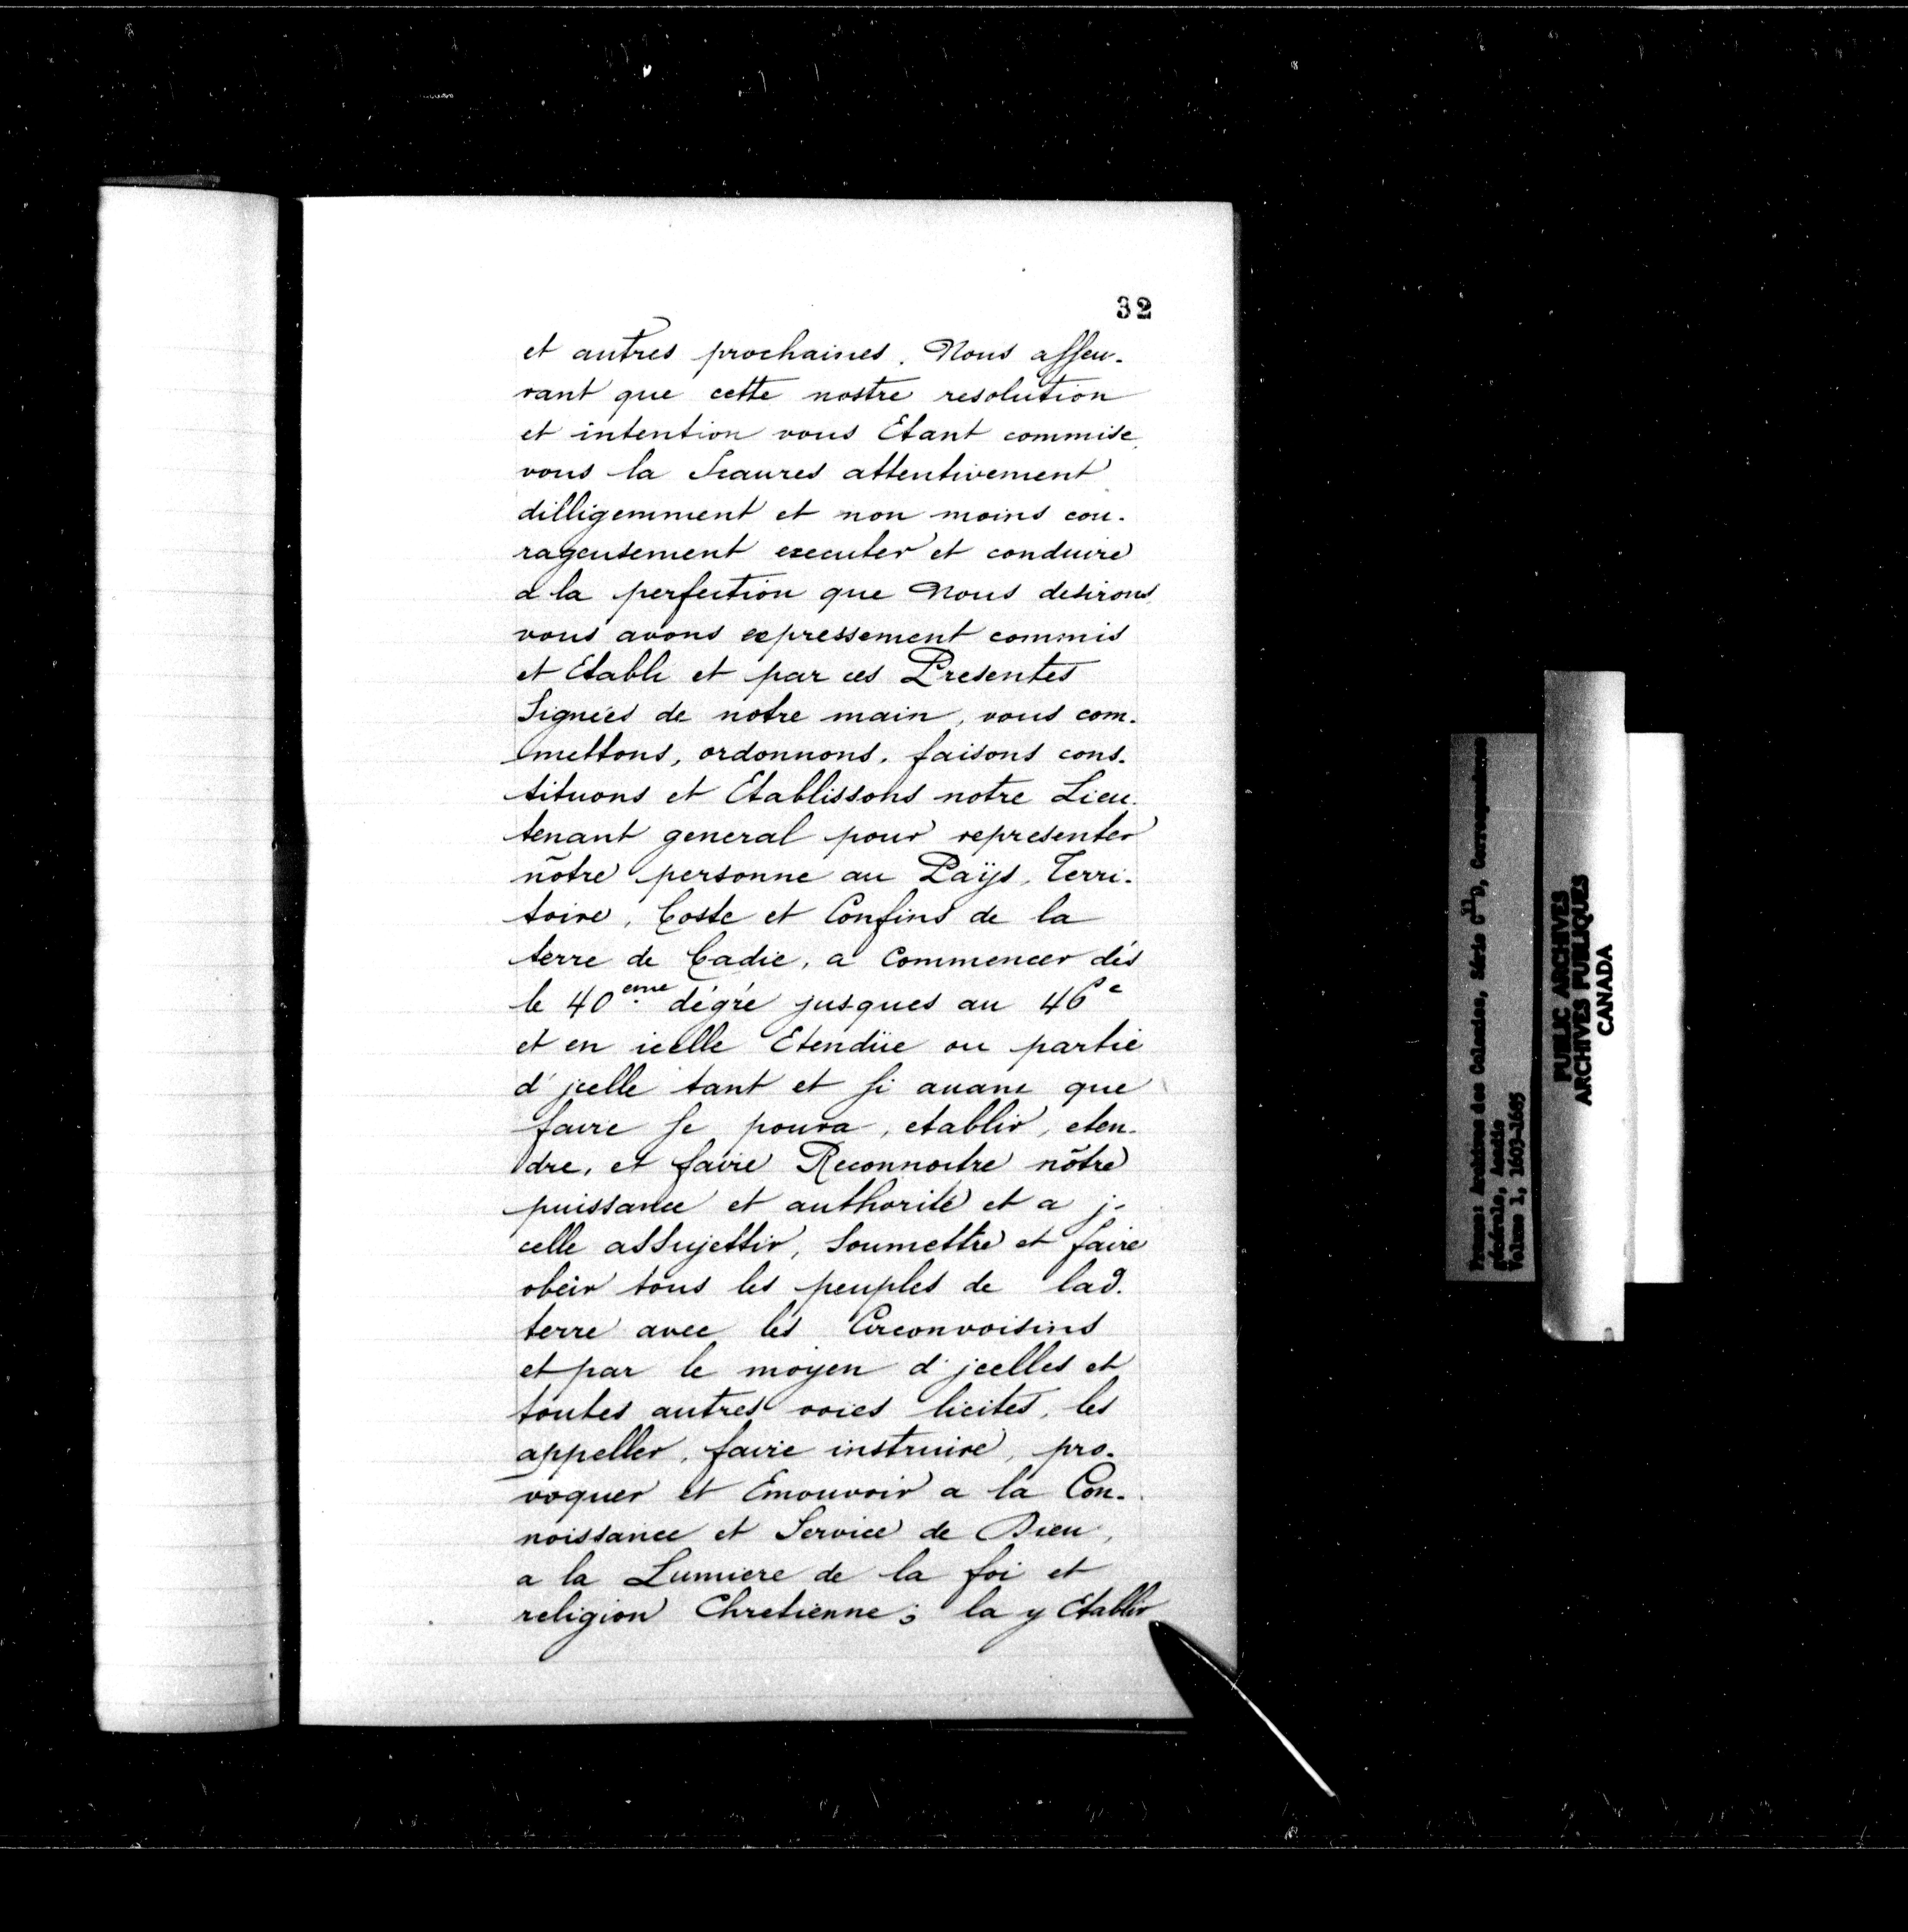 32
et autres prochaines. Nous asseu-
rant que cette nostre resolution
et intention vous Etant commise,
vous la Scaures attentivement
dilligemment et non moins cou-
rageusement executer et conduire
a la perfection que Nous desirons,
vous avons expressement commis
et Etabli et par ces Presentes
Signées de notre main, vous com-
mettons, ordonnons, faisons cons-
tituons et Etablissons notre Lieu-
tenant general pour representer
nõtre personne au Païjs, Terri-
toire, Coste et Confins de la
terre de Cadie, a Commencer dés
le 40eme dégré jusques au 46e
et en icelle Etendüe ou partie
d'jcelle tant et si auant que
faire se poura, etablir, eten-
dre, et faire Reconnoitre nõtre
puissance et authorité et a j-
celle assujettir, Soumettre et faire
obéir tous les peuples de lad.
terre avec les Circonvoisins
et par le moyen d'jcelles et
toutes autres voies licites, les
appeller, faire instruire, pro-
voquer et Emouvoir a la Con-
noissance et Service de Dieu,
a la Lumiere de la foi et
religion Chretienne; la y Etablir
France: Archives des Colonies, Série C11D, Correspondance
générale, Acadie
Volume 1, 1603-1685
PUBLIC ARCHIVES
ARCHIVES PUBLIQUES
CANADA